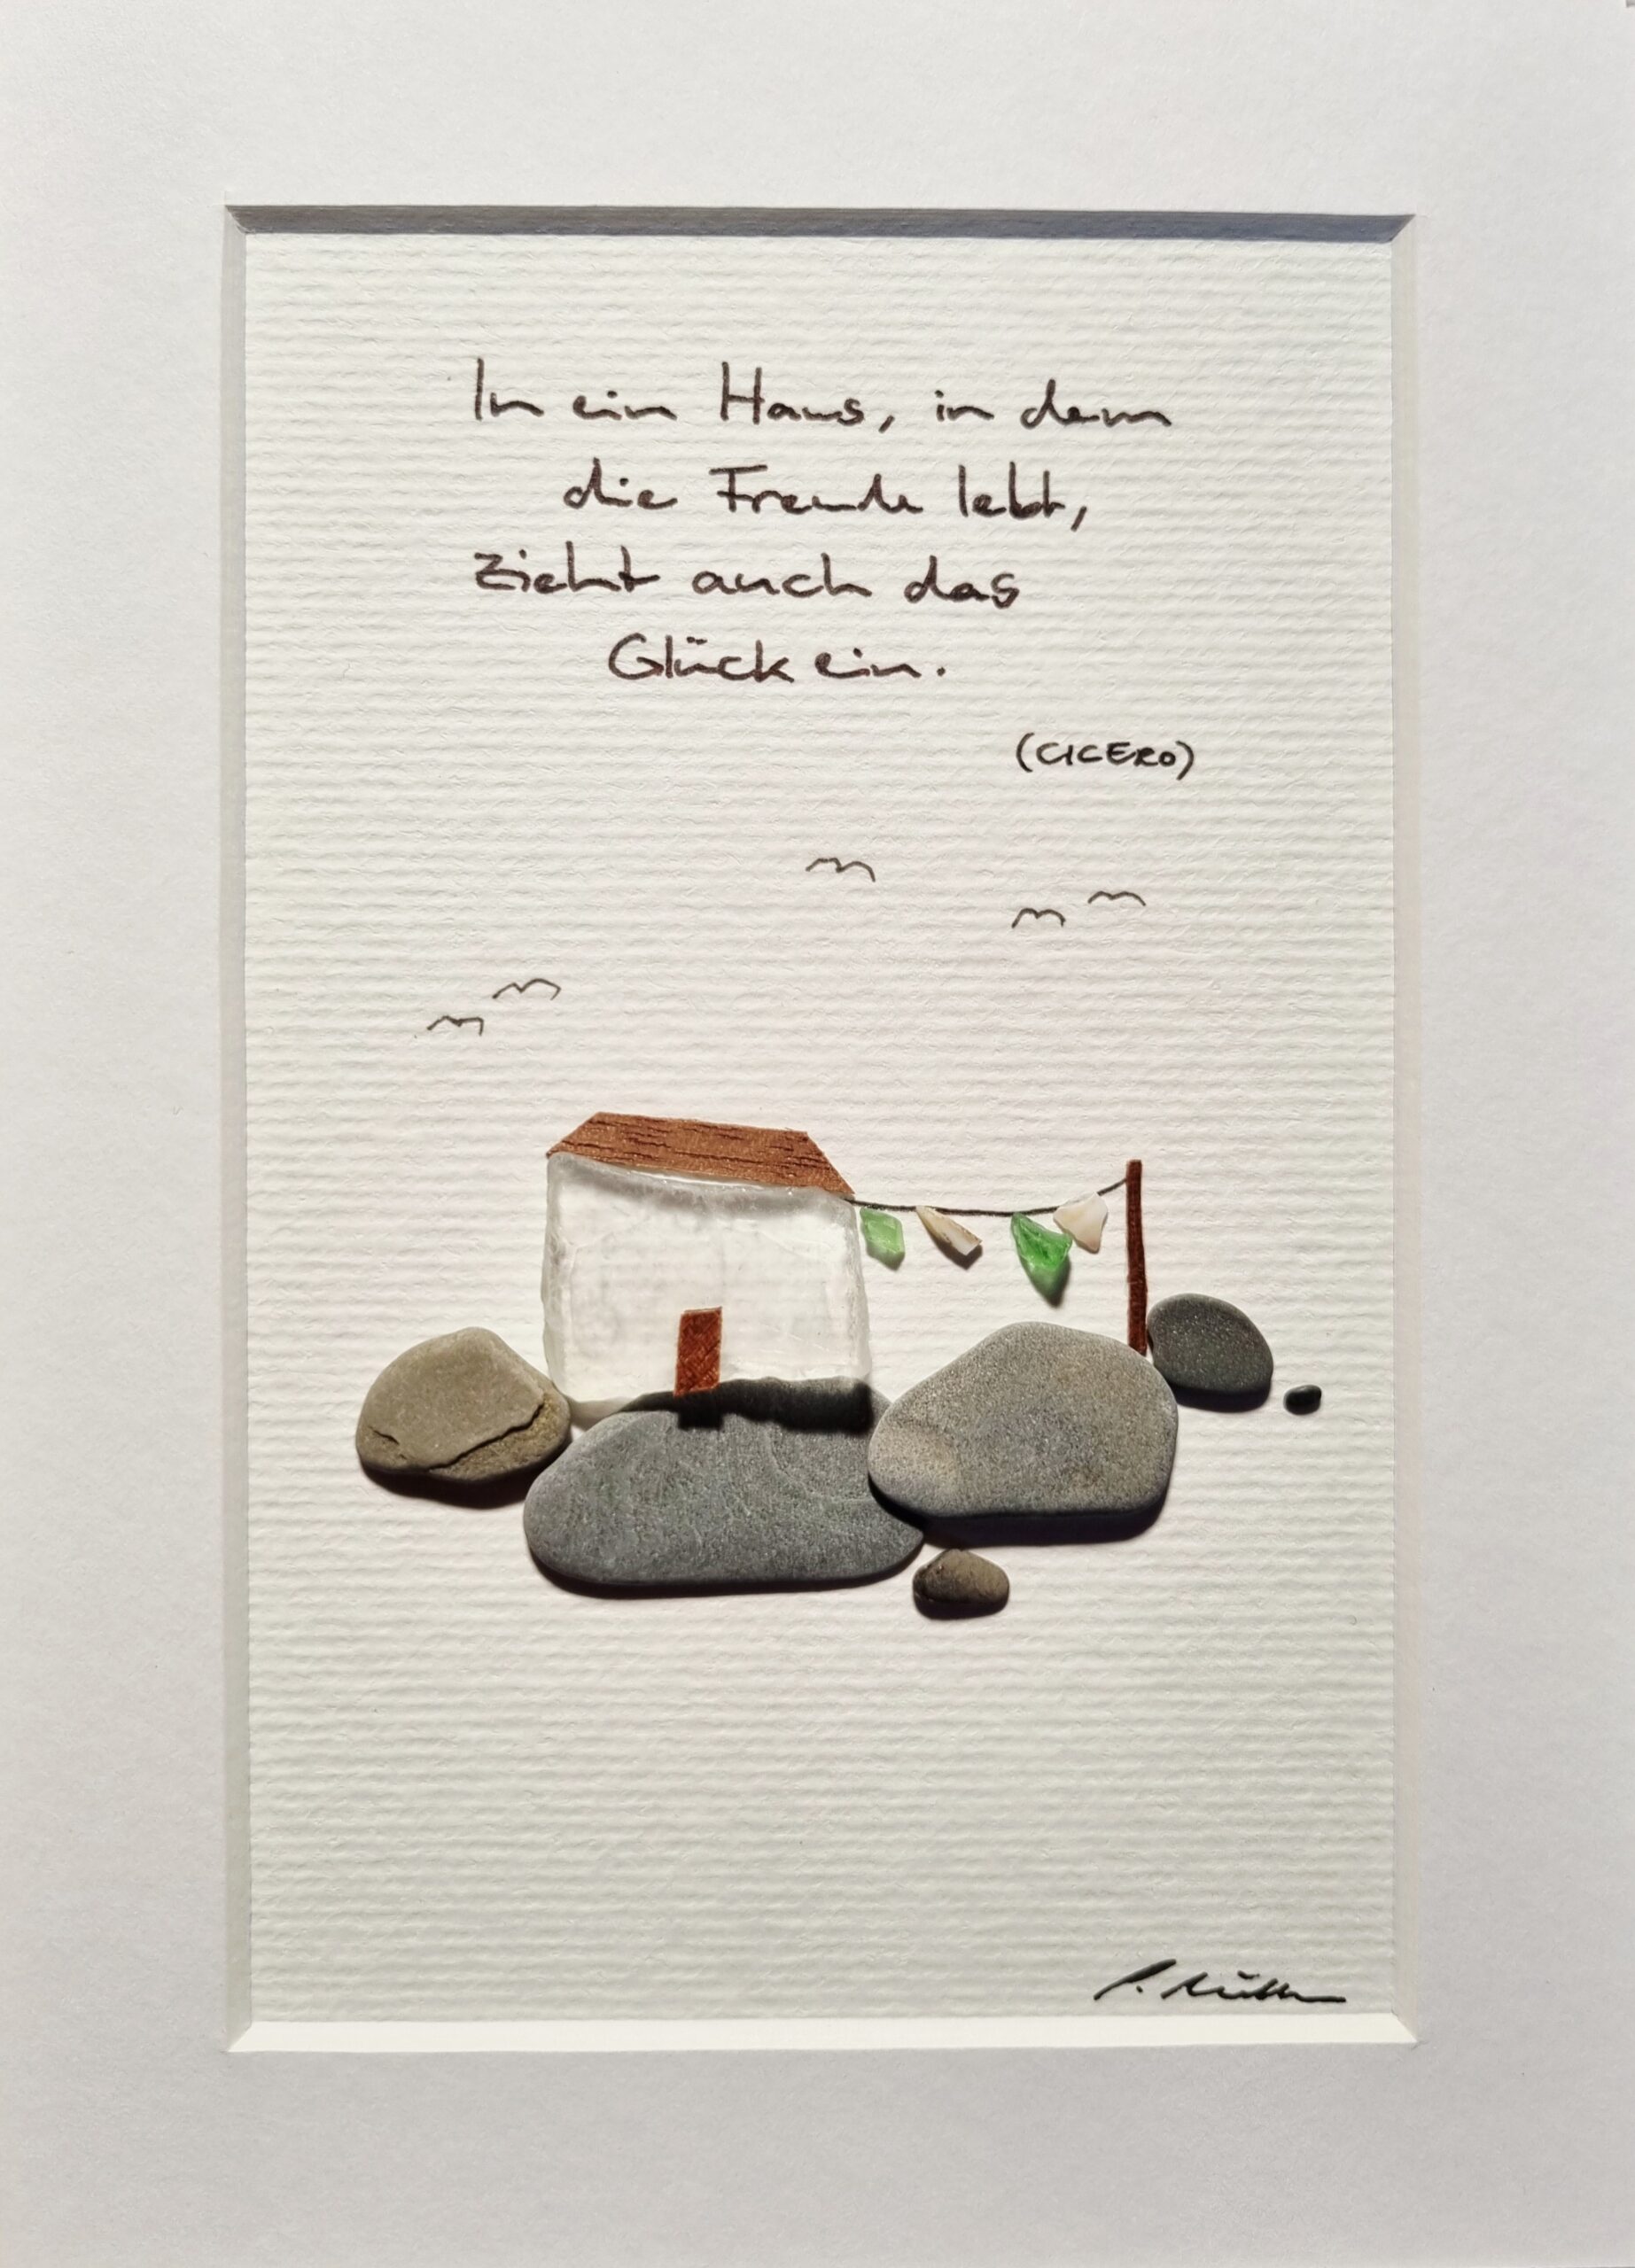 In ein Haus, in dem
die Freude lebt,
zieht auch das
Glück ein.
(CICERO)